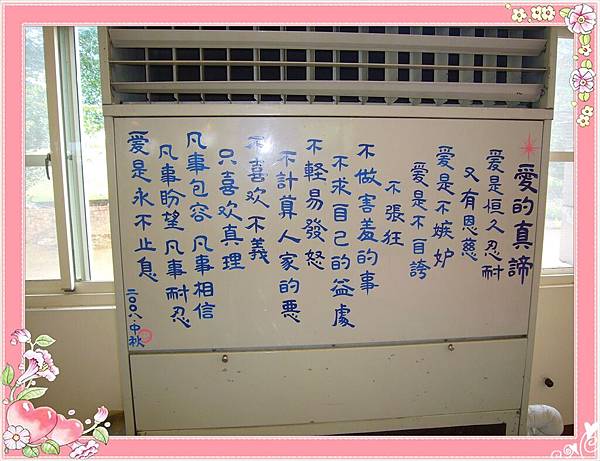 愛的真諦
爱是恒久忍耐
又有恩慈
爱是不嫉妒
爱是不自誇
不張狂
不做害羞的事
不求自己的益處
不輕易發怒
不計算人家的悪
不喜欢不義
只喜欢真理
凡事包容 凡事相信
凡事盼望 凡事耐忍
爱是永不止息
二〇〇八·中秋